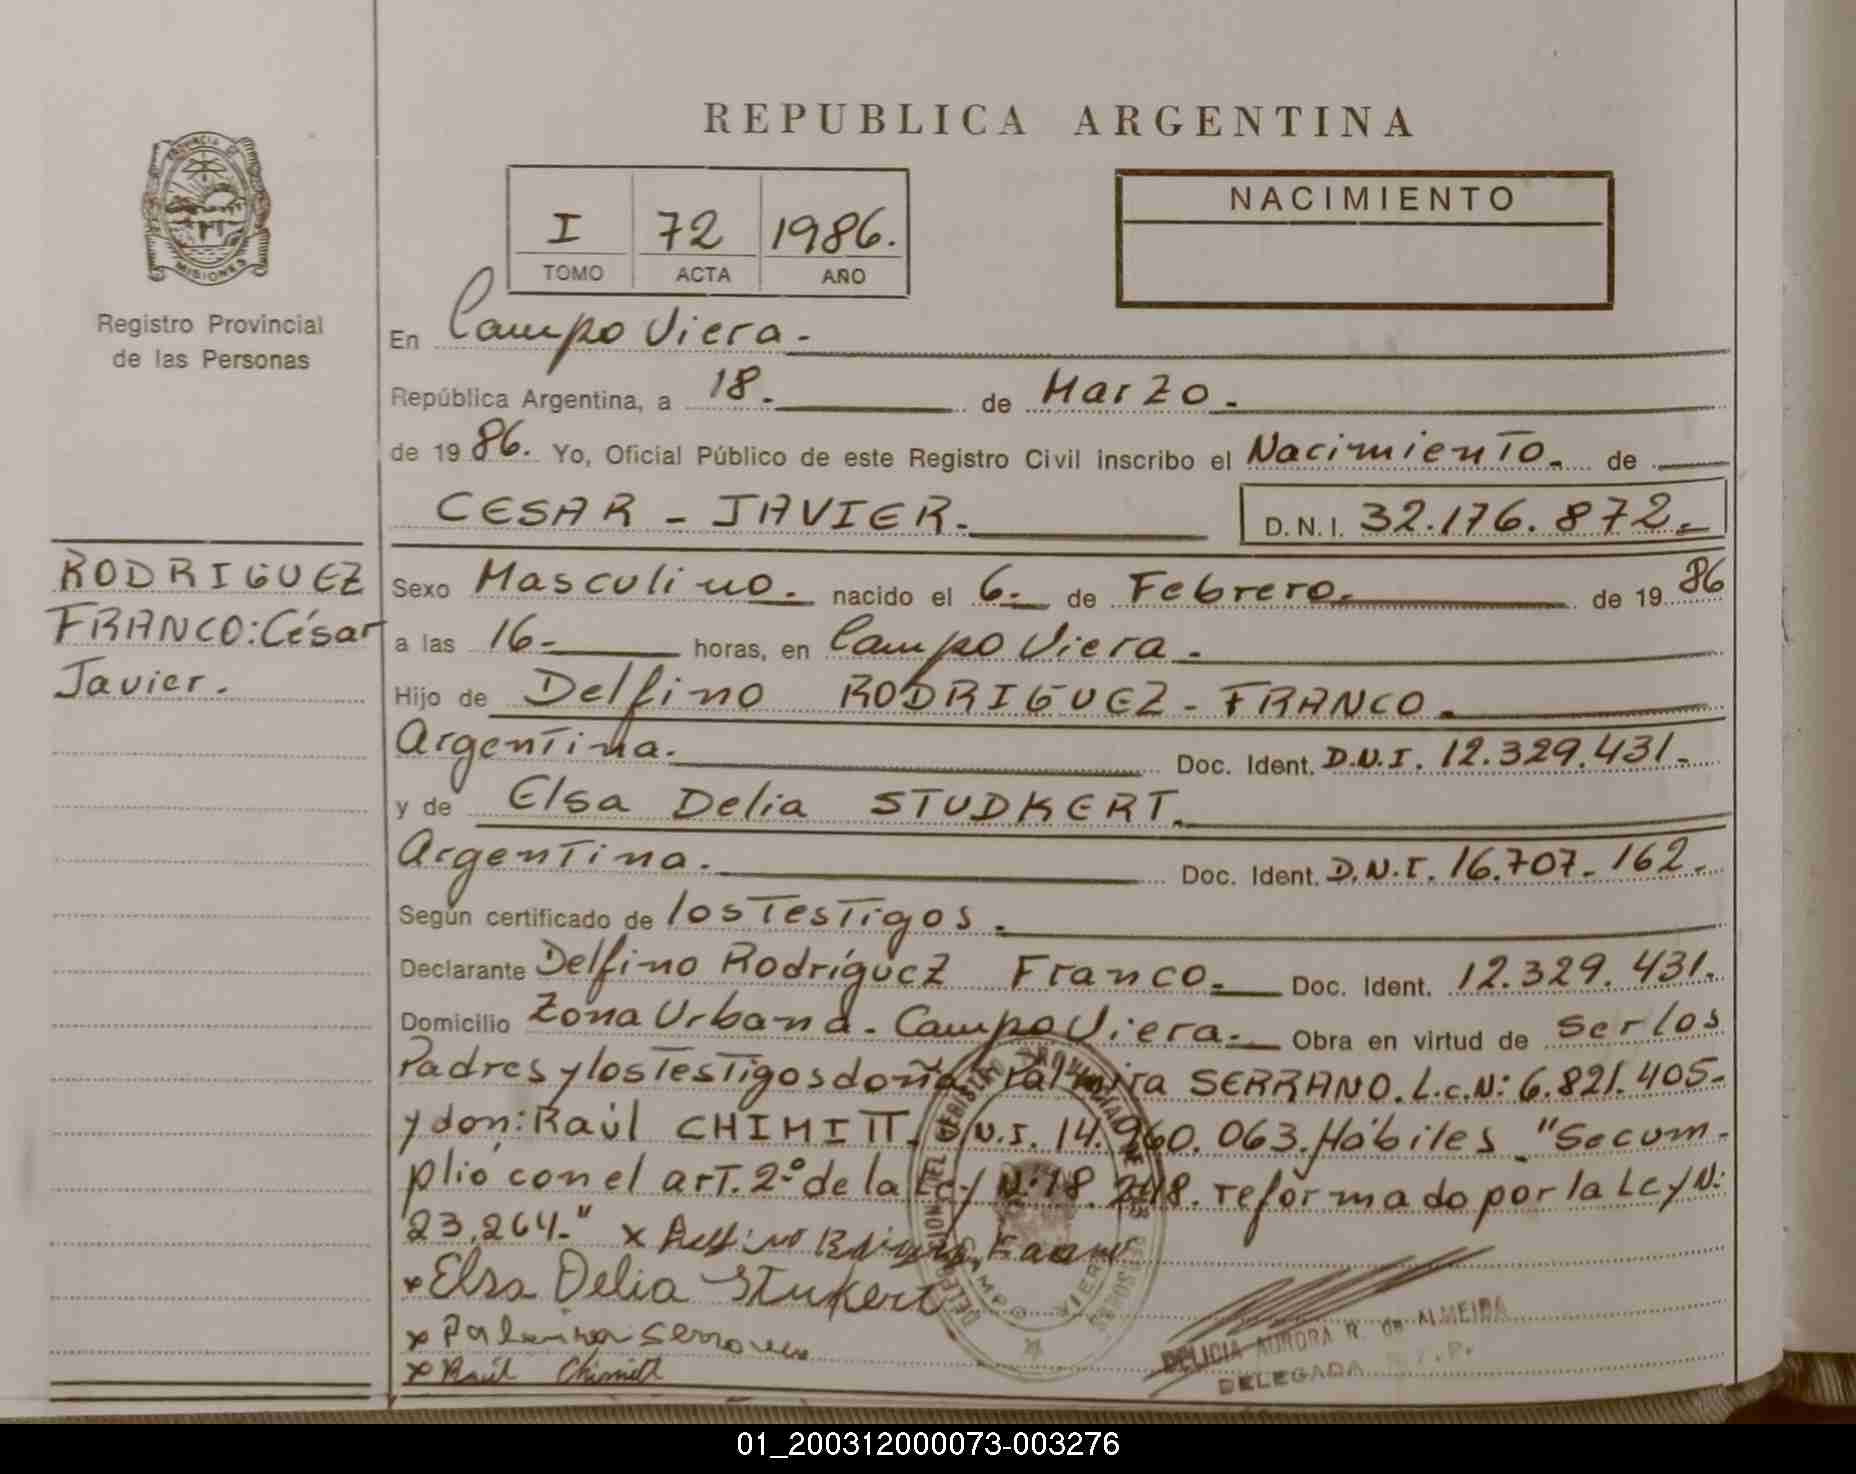 REPUBLICA ARGENTINA
PROVINCIA DE
MISIONES
Registro Provincial
de las Personas
I 72 1986.
TOMO ACTA AÑO
NACIMIENTO
En Campo Viera.
República Argentina, a 18. de Marzo.
de 19 86. Yo, Oficial Público de este Registro Civil inscribo el Nacimiento. de
CESAR - JAVIER. D.N.I. 32.176.872.
RODRIGUEZ
FRANCO: César
Javier.
Sexo Masculino. nacido el 6. de Febrero. de 19 86
a las 16. horas, en Campo Viera.
Hijo de Delfino RODRIGUEZ - FRANCO.
Argentina. Doc. Ident. D.N.I. 12.329.431.
y de Elsa Delia STUDKERT.
Argentina. Doc. Ident. D.N.I. 16.707.162.
Según certificado de los Testigos.
Declarante Delfino Rodríguez Franco. Doc. Ident. 12.329.431.
Domicilio Zona Urbana. Campo Viera. Obra en virtud de ser los
Padres y los Testigos doña: Palmira SERRANO. L.c.N: 6.821.405-
y don: Raúl CHIMITT. D.N.I. 14.960.063. Hábiles. "Se cum-
plió con el art. 2º de la Ley N: 18.248. reformado por la Ley N:
23.264."
x Elsa Delia Stukert
x Palmira Serrano
x Raúl Chimitt
DELICIA AURORA R. de ALMEIDA
DELEGADA
01_200312000073-003276